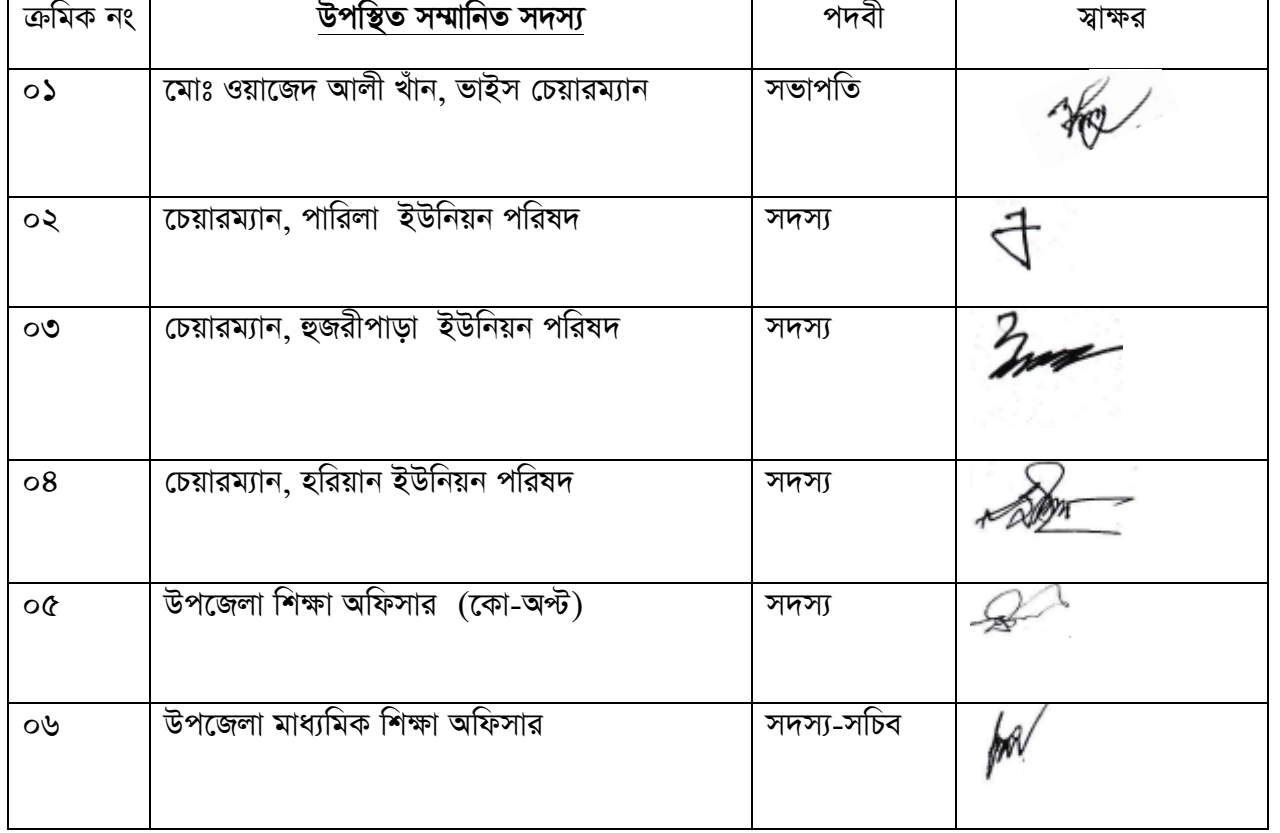 ক্রমিক নং উপস্থিত সম্মানিত সদস্য পদবী স্বাক্ষর
০১ মোঃ ওয়াজেদ আলী খাঁন, ভাইস চেয়ারম্যান সভাপতি
০২ চেয়ারম্যান, পারিলা ইউনিয়ন পরিষদ সদস্য
০৩ চেয়ারম্যান, হুজরীপাড়া ইউনিয়ন পরিষদ সদস্য
০৪ চেয়ারম্যান, হরিয়ান ইউনিয়ন পরিষদ সদস্য
০৫ উপজেলা শিক্ষা অফিসার (কো-অপ্ট) সদস্য
০৬ উপজেলা মাধ্যমিক শিক্ষা অফিসার সদস্য-সচিব